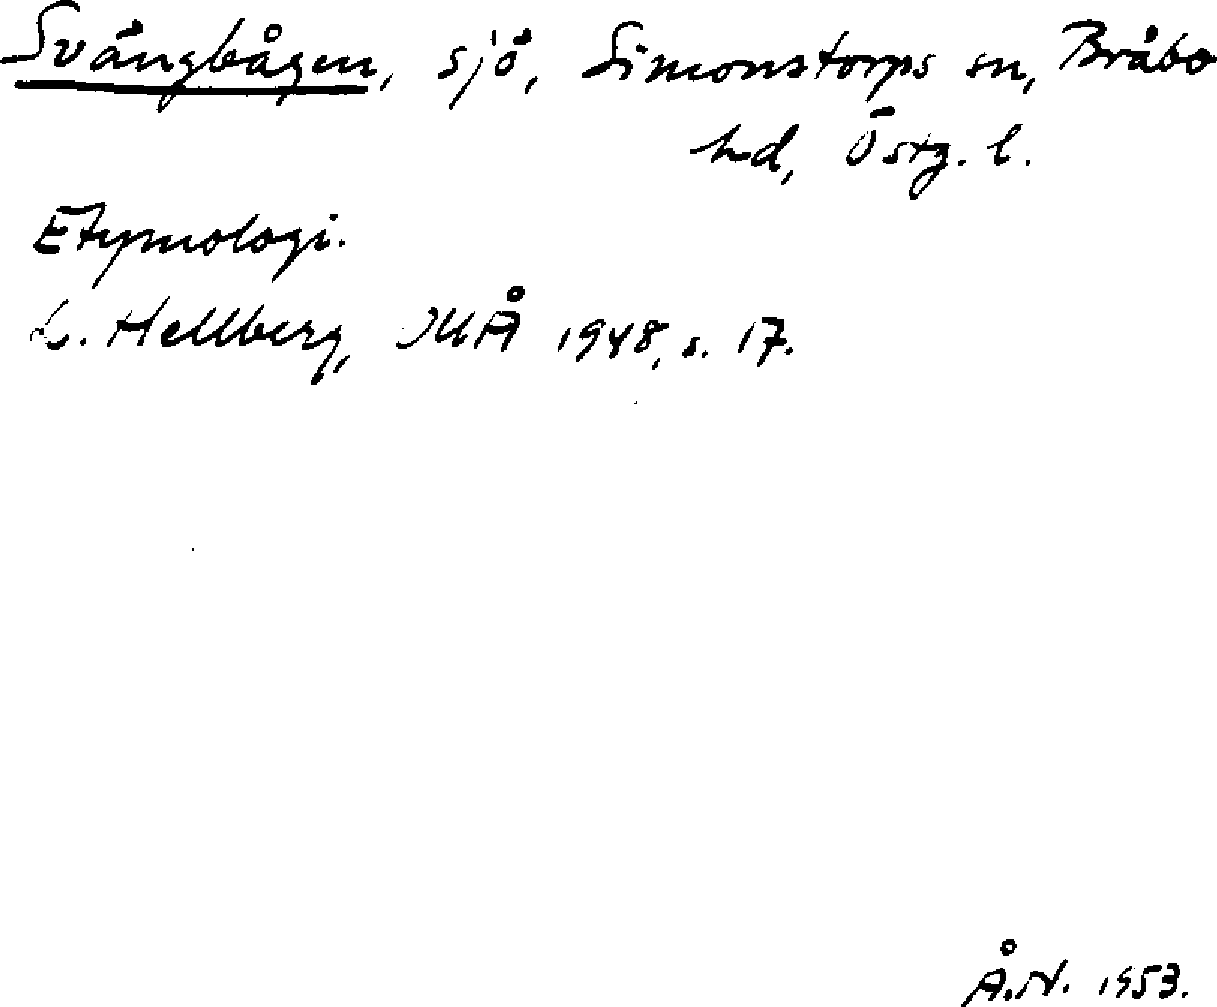 Svängbågen, sjö, Simonstorps sn, Bråbo
hd, Östg. l.
Etymologi.
L. Hellberg, UUÅ 1948, s. 17.
Å.N. 1953.